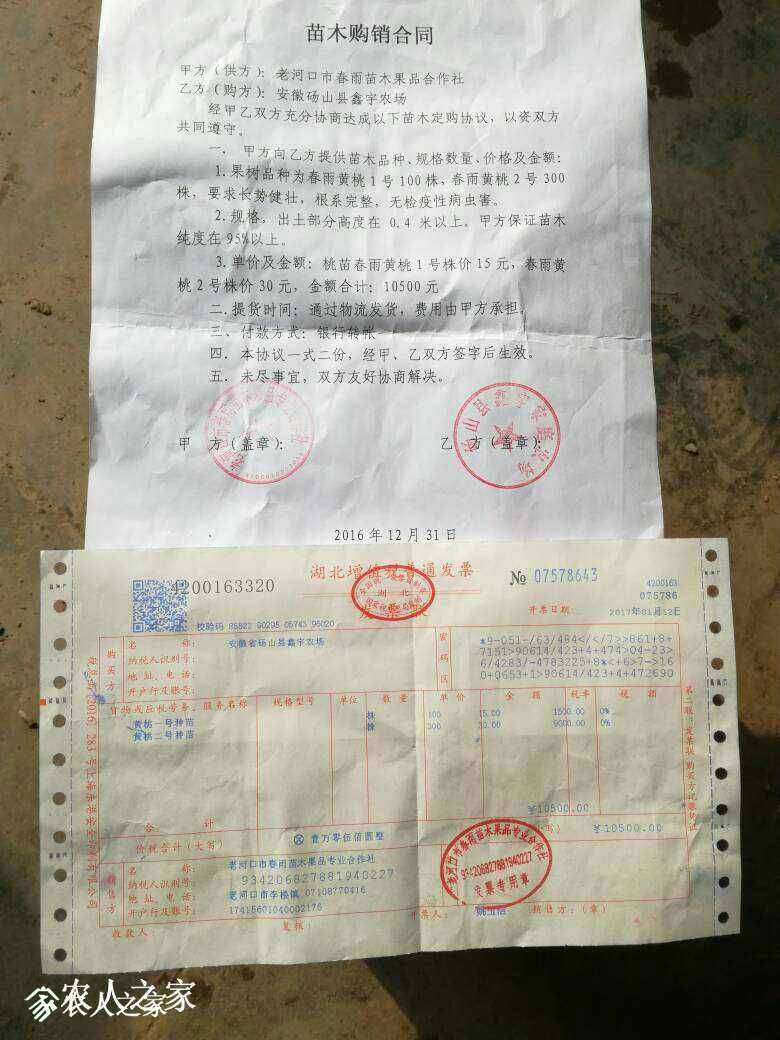 苗木购销合同
甲方（供方）：老河口市春雨苗木果品合作社
乙方（购方）：安徽砀山县鑫宇农场
经甲乙双方充分协商达成以下苗木定购协议，以资双方
共同遵守。
一．甲方向乙方提供苗木品种、规格数量、价格及金额：
1.果树品种为春雨黄桃1号100株，春雨黄桃2号300
株，要求长势健壮，根系完整，无检疫性病虫害。
2.规格，出土部分高度在 0.4 米以上。甲方保证苗木
纯度在95%以上。
3.单价及金额：桃苗春雨黄桃1号株价15元，春雨黄
桃2号株价30元，金额合计：10500元
二．提货时间：通过物流发货，费用由甲方承担。
三、付款方式：银行转帐
四．本协议一式二份，经甲、乙双方签字后生效。
五．未尽事宜，双方友好协商解决。
甲 方（盖章）：
乙 方（盖章）：
2016年12月31日
4200163320
湖北增值税普通发票
湖 北
№ 07578643
4200163
075786
校验码
开票日期：
2017年01月12日
购买方
名 称：
安徽省砀山县鑫宇农场
纳税人识别号：
地 址、电 话：
开户行及账号：
密码区
*9-051-/63/484</</7>>861+8+
7151>90614/423+4+474>04-23>
6/4283/-4783225+8*<+6>7->16
0+0653+1>90614/423+4+472690
货物或应税劳务、服务名称 规格型号 单位 数 量 单 价 金 额 税率 税 额
黄桃一号种苗 株 100 15.00 1500.00 0%
黄桃二号种苗 株 300 30.00 9000.00 0%
合 计
￥10500.00
价税合计（大写） ⊗壹万零伍佰圆整
￥10500.00
销售方
名 称：
老河口市春雨苗木果品专业合作社
纳税人识别号：
934206827881940227
地 址、电 话：
老河口市李楼镇，07108770416
开户行及账号：
17415601040002176
老河口市春雨苗木果品专业合作社
934206827881940227
发票专用章
收款人：
复核：
开票人：
销售方：（章）
第二联：发票联 购买方记账凭证
农人之家